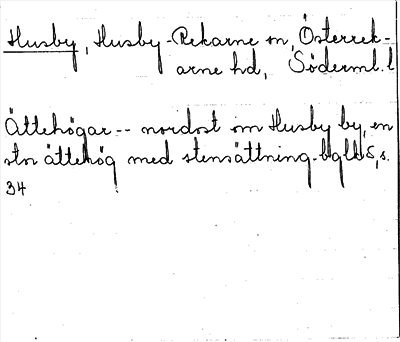 Husby, Husby-Rekarne sn, Österrek-
arne hd, Söderml. l
Ättehögar -- nordost om Husby by, en
stor ättehög med stensättning.- S, s.
34